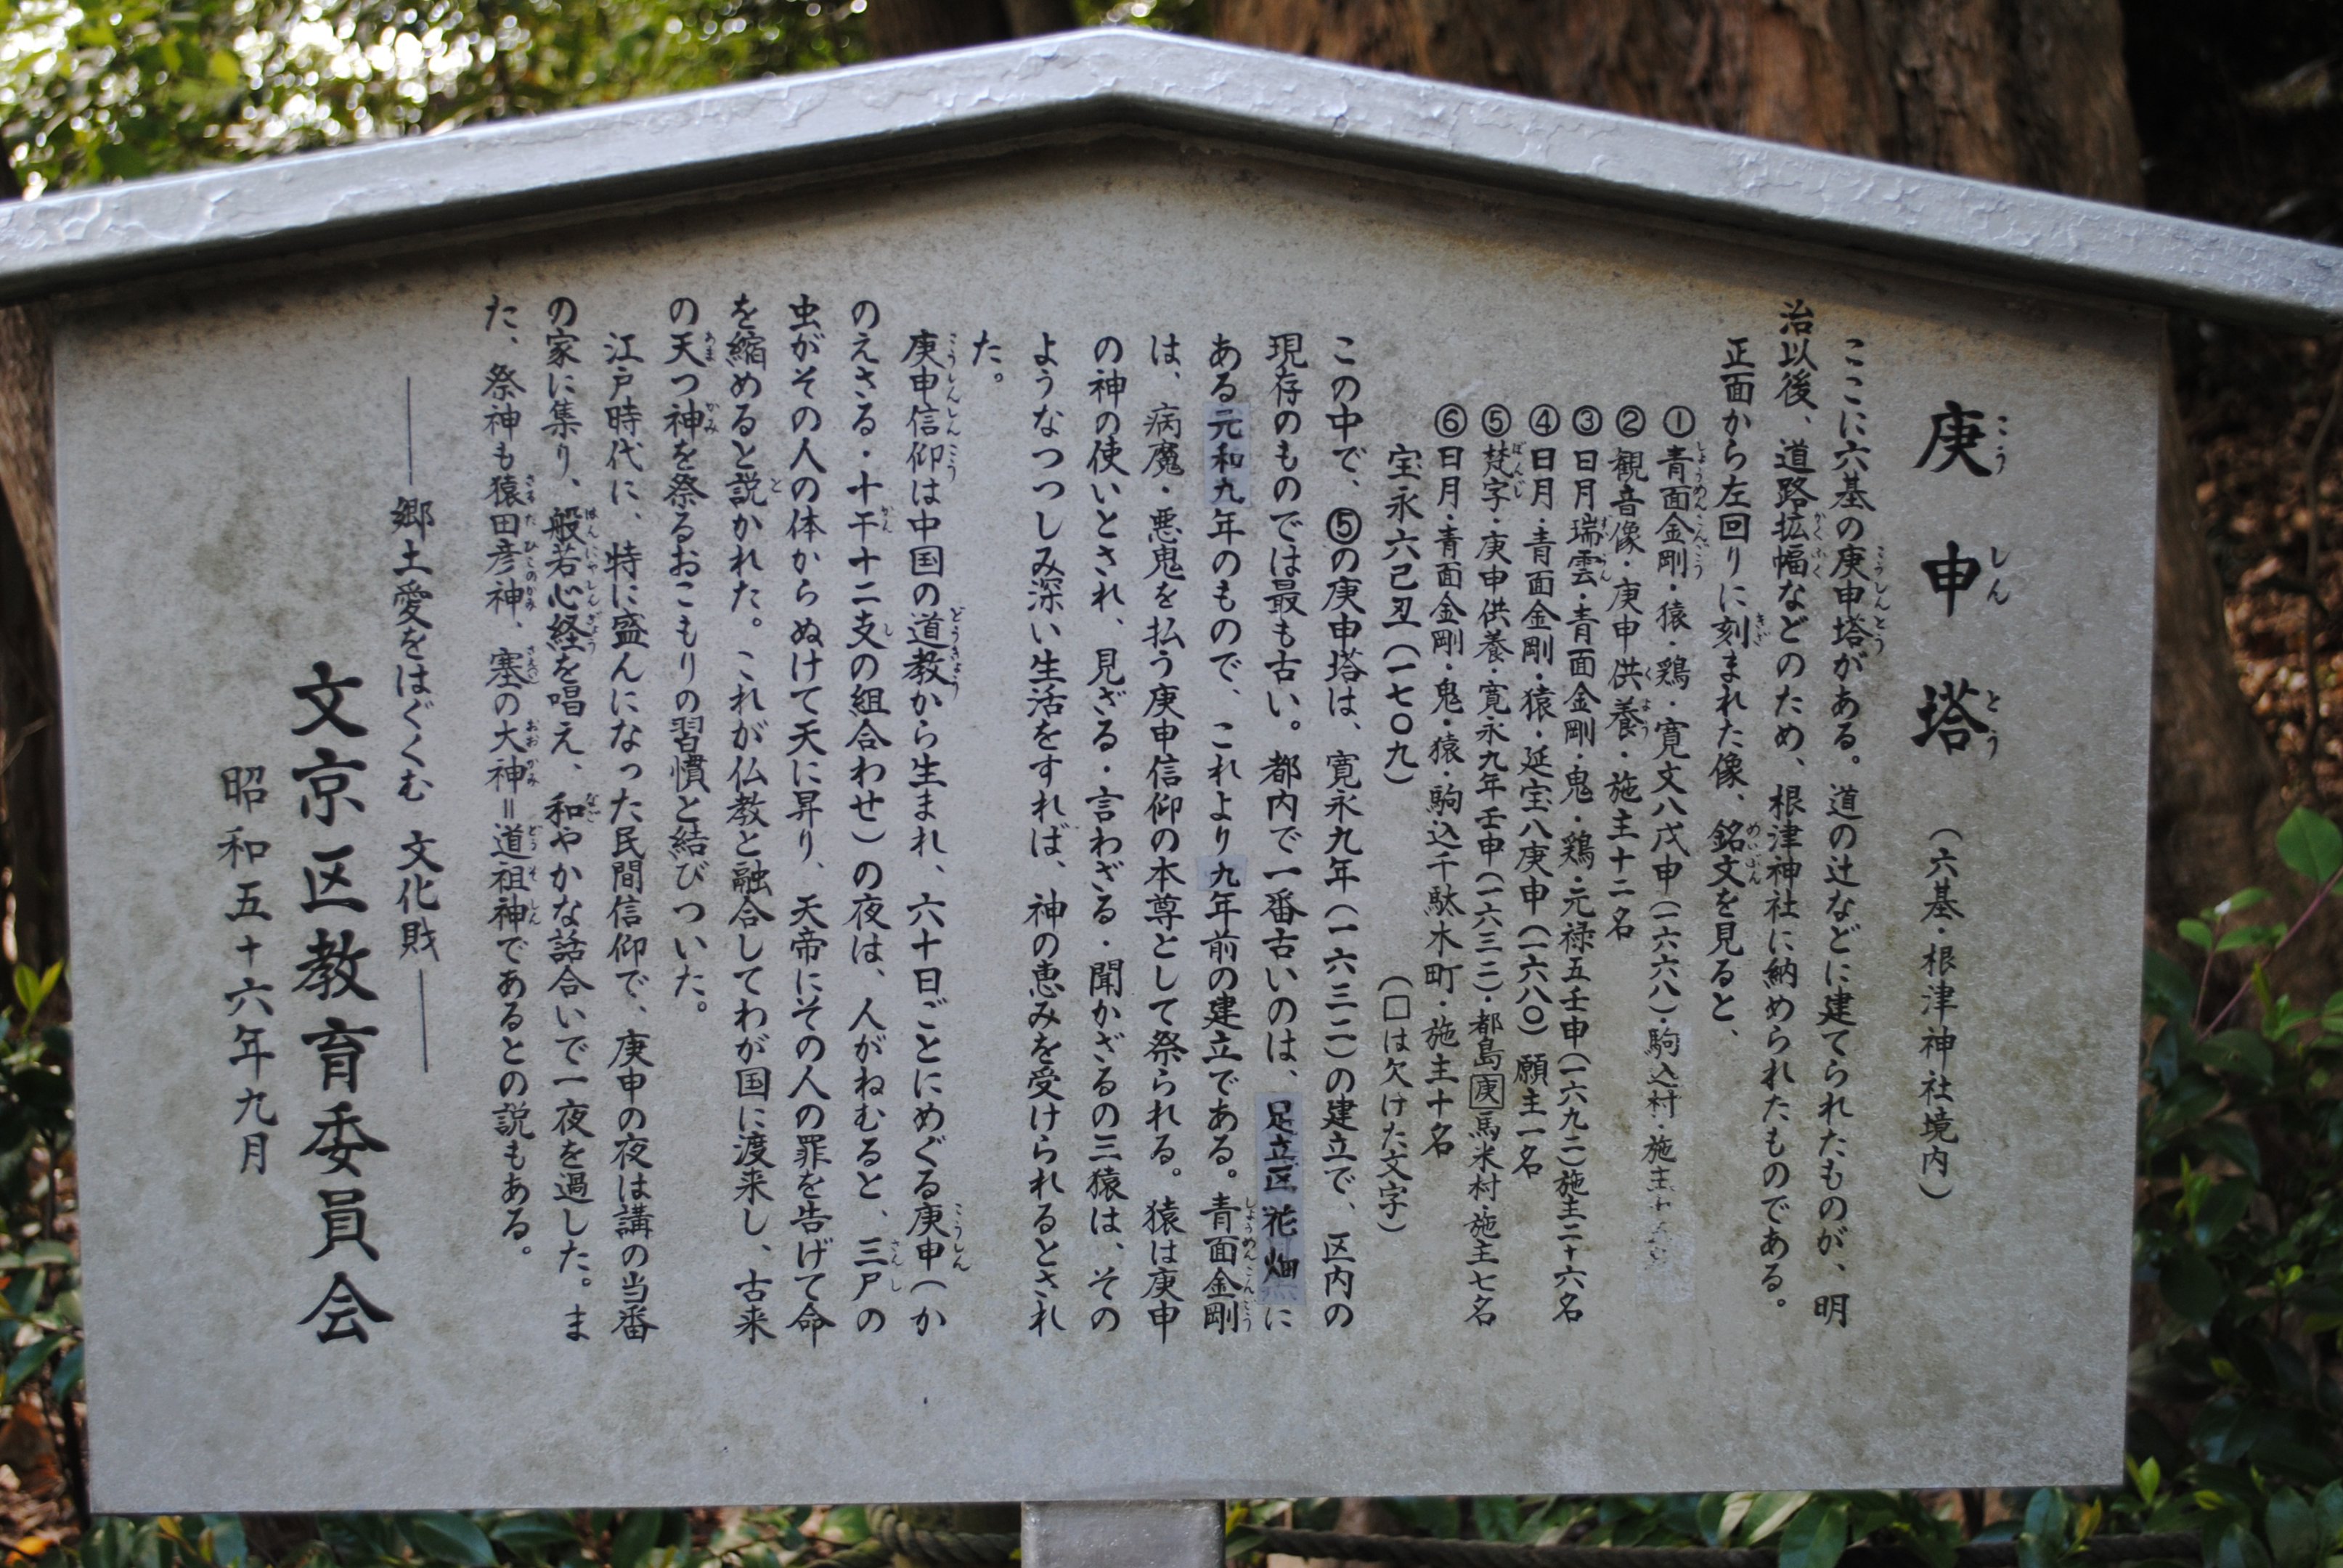 庚申塔 (六基・根津神社境内)
ここに六基の庚申塔がある。道の辻などに建てられたものが、明
治以後、道路拡幅などのため、根津神社に納められたものである。
正面から左回りに刻まれた像、銘文を見ると、
①青面金剛・猿・鶏・寛文八戊申(一六六八)・駒込村・施主
②観音像・庚申供養・施主十二名
③日月瑞雲・青面金剛・鬼・鶏・元禄五壬申(一六九二)施主二十六名
④日月・青面金剛・猿・延宝八庚申(一六八〇)願主一名
⑤梵字・庚申供養・寛永九年壬申(一六三二)・都島庚馬米村・施主七名
⑥日月・青面金剛・鬼・猿・駒込千駄木町・施主十名
宝永六己丑(一七〇九) (□は欠けた文字)
この中で、⑤の庚申塔は、寛永九年(一六三二)の建立で、区内の
現存のものでは最も古い。都内で一番古いのは、足立区花畑に
ある元和九年のもので、これより九年前の建立である。青面金剛
は、病魔・悪鬼を払う庚申信仰の本尊として祭られる。猿は庚申
の神の使いとされ、見ざる・言わざる・聞かざるの三猿は、その
ようなつつしみ深い生活をすれば、神の恵みを受けられるとされ
た。
庚申信仰は中国の道教から生まれ、六十日ごとにめぐる庚申(か
のえさる・十干十二支の組合わせ)の夜は、人がねむると、三尸の
虫がその人の体からぬけて天に昇り、天帝にその人の罪を告げて命
を縮めると説かれた。これが仏教と融合してわが国に渡来し、古来
の天つ神を祭るおこもりの習慣と結びついた。
江戸時代に、特に盛んになった民間信仰で、庚申の夜は講の当番
の家に集り、般若心経を唱え、和やかな話合いで一夜を過した。ま
た、祭神も猿田彦神、塞の大神=道祖神であるとの説もある。
――郷土愛をはぐくむ 文化財――
文京区教育委員会
昭和五十六年九月